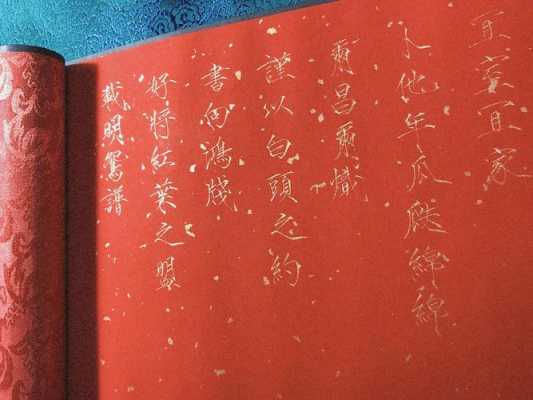 宜室宜家
卜他年瓜瓞綿綿
爾昌爾熾
謹以白頭之約
書向鴻牋
好將紅葉之盟
載明鴛譜